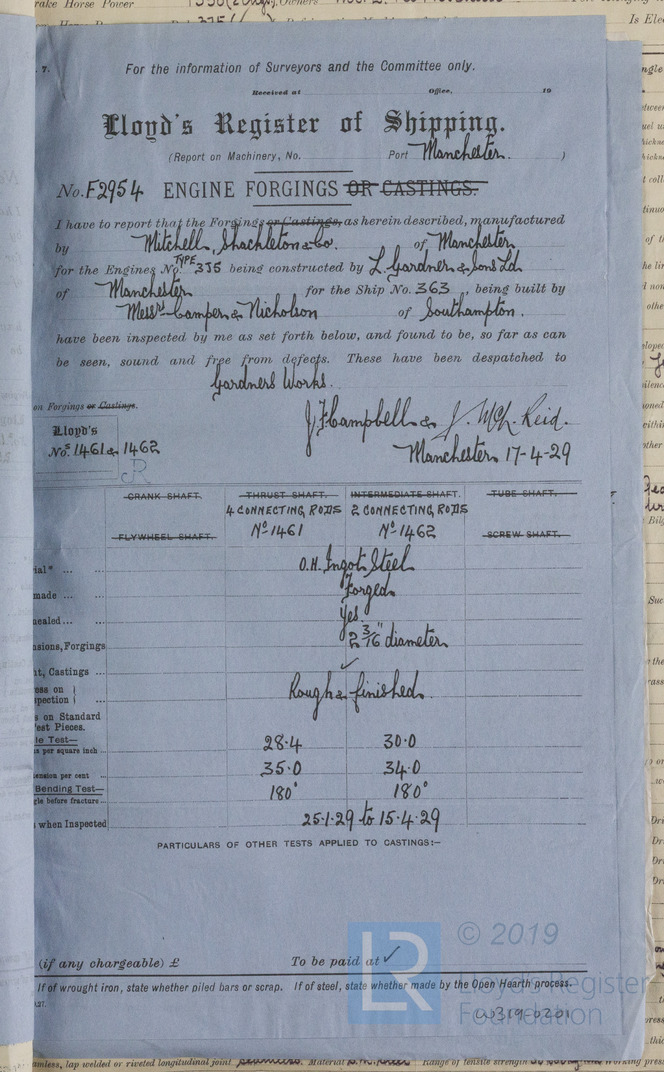 rake Horse Power
Owners
Is Elec
7.
For the information of Surveyors and the Committee only.
Received at Office, 19
Lloyd's Register of Shipping.
(Report on Machinery, No. Port Manchester. )
No. F2954 ENGINE FORGINGS OR CASTINGS.
I have to report that the Forgings or Castings, as herein described, manufactured
by Mitchell, Shackleton & Co. of Manchester
for the Engines No. TYPE 3J5 being constructed by L. Gardner & Sons Ld
of Manchester for the Ship No. 363, being built by
Messrs Camper & Nicholson of Southampton.
have been inspected by me as set forth below, and found to be, so far as can
be seen, sound and free from defects. These have been despatched to
Gardners Works.
on Forgings or Castings.
J F Campbell & J. McK. Reid.
Lloyd's
Nos. 1461 & 1462
R
Manchester 17-4-29
CRANK SHAFT. THRUST SHAFT. INTERMEDIATE SHAFT. TUBE SHAFT.
4 CONNECTING RODS 2 CONNECTING RODS
FLYWHEEL SHAFT. No 1461 No 1462 SCREW SHAFT.
ial* ... ... O.H. Ingot Steel
made ... ... Forged
nealed ... ... Yes.
nsions, Forgings 2 3/16" diameter
nt, Castings ... ✓
ess on }
spection } Rough & finished.
s on Standard
Test Pieces.
le Test—
ns per square inch ... 28.4 30.0
tension per cent ... 35.0 34.0
Bending Test—
gle before fracture ... 180° 180°
s when Inspected 25.1.29 to 15.4.29
PARTICULARS OF OTHER TESTS APPLIED TO CASTINGS:–
(if any chargeable) £ To be paid at ✓
If of wrought iron, state whether piled bars or scrap. If of steel, state whether made by the Open Hearth process.
LR
© 2019
Lloyd's Register
Foundation
W319-0201
amless, lap welded or riveted longitudinal joint seamless. Material Range of tensile strength